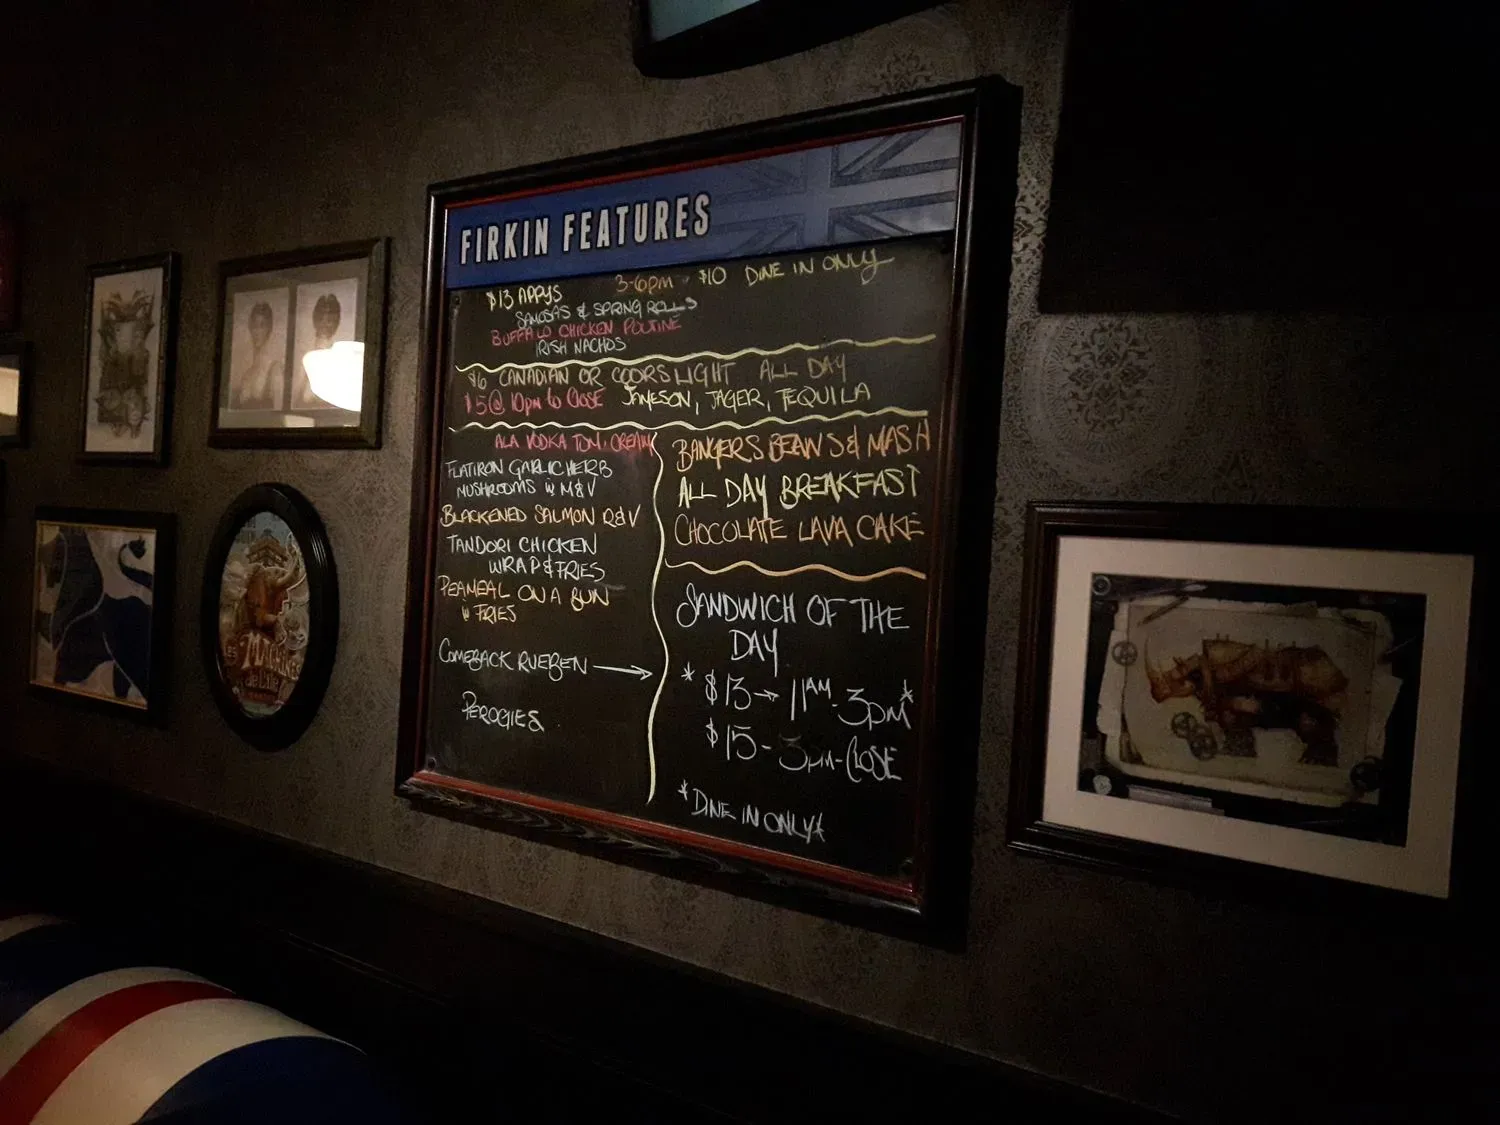 FIRKIN FEATURES
$13 APPYS 3-6pm - $10 DINE IN ONLY
SAMOSAS & SPRING ROLLS
BUFFALO CHICKEN POUTINE
IRISH NACHOS
$6 CANADIAN OR COORS LIGHT ALL DAY
$5 @ 10pm to CLOSE JAMESON, JAGER, TEQUILA
ALA VODKA TOM. CREAM
FLATIRON GARLIC HERB
MUSHROOMS w M&V
BLACKENED SALMON R&V
TANDORI CHICKEN
WRAP & FRIES
PEAMEAL ON A BUN
w FRIES
COMEBACK RUEBEN →
PEROGIES
BANGERS BEANS & MASH
ALL DAY BREAKFAST
CHOCOLATE LAVA CAKE
SANDWICH OF THE
DAY
* $13 → 11AM-3pm *
$15 - 3pm-CLOSE
* DINE IN ONLY *
Les
MACHINES
de L'île